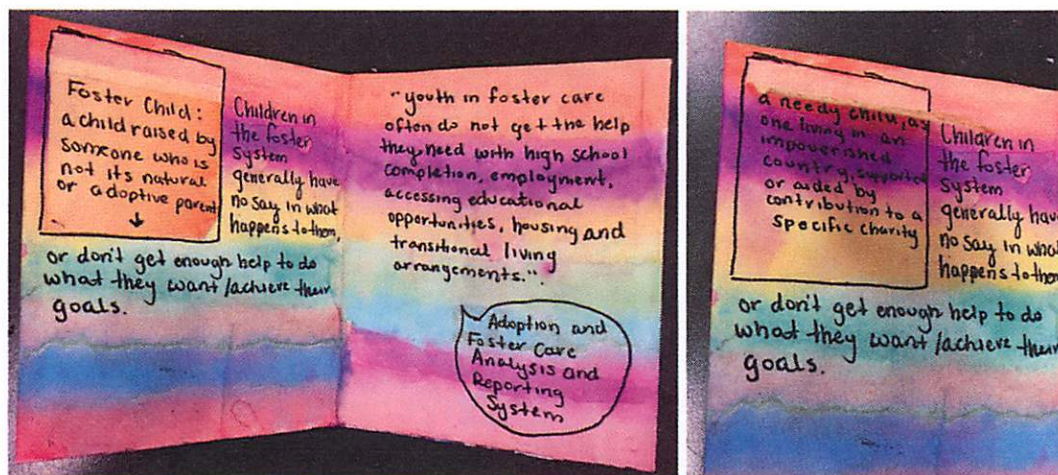 Foster Child:
a child raised by
someone who is
not its natural
or adoptive parent
↓
Children in
the foster
system
generally have
no say in what
happens to them,
or don't get enough help to do
what they want/achieve their
goals.
"youth in foster care
often do not get the help
they need with high school
completion, employment,
accessing educational
opportunities, housing and
transitional living
arrangements.".
Adoption and
Foster Care
Analysis and
Reporting
System
a needy child, as
one living in an
impoverished
country, supported
or aided by
contribution to a
specific charity
Children in
the foster
system
generally have
no say in what
happens to them
or don't get enough help to do
what they want/achieve their
goals.